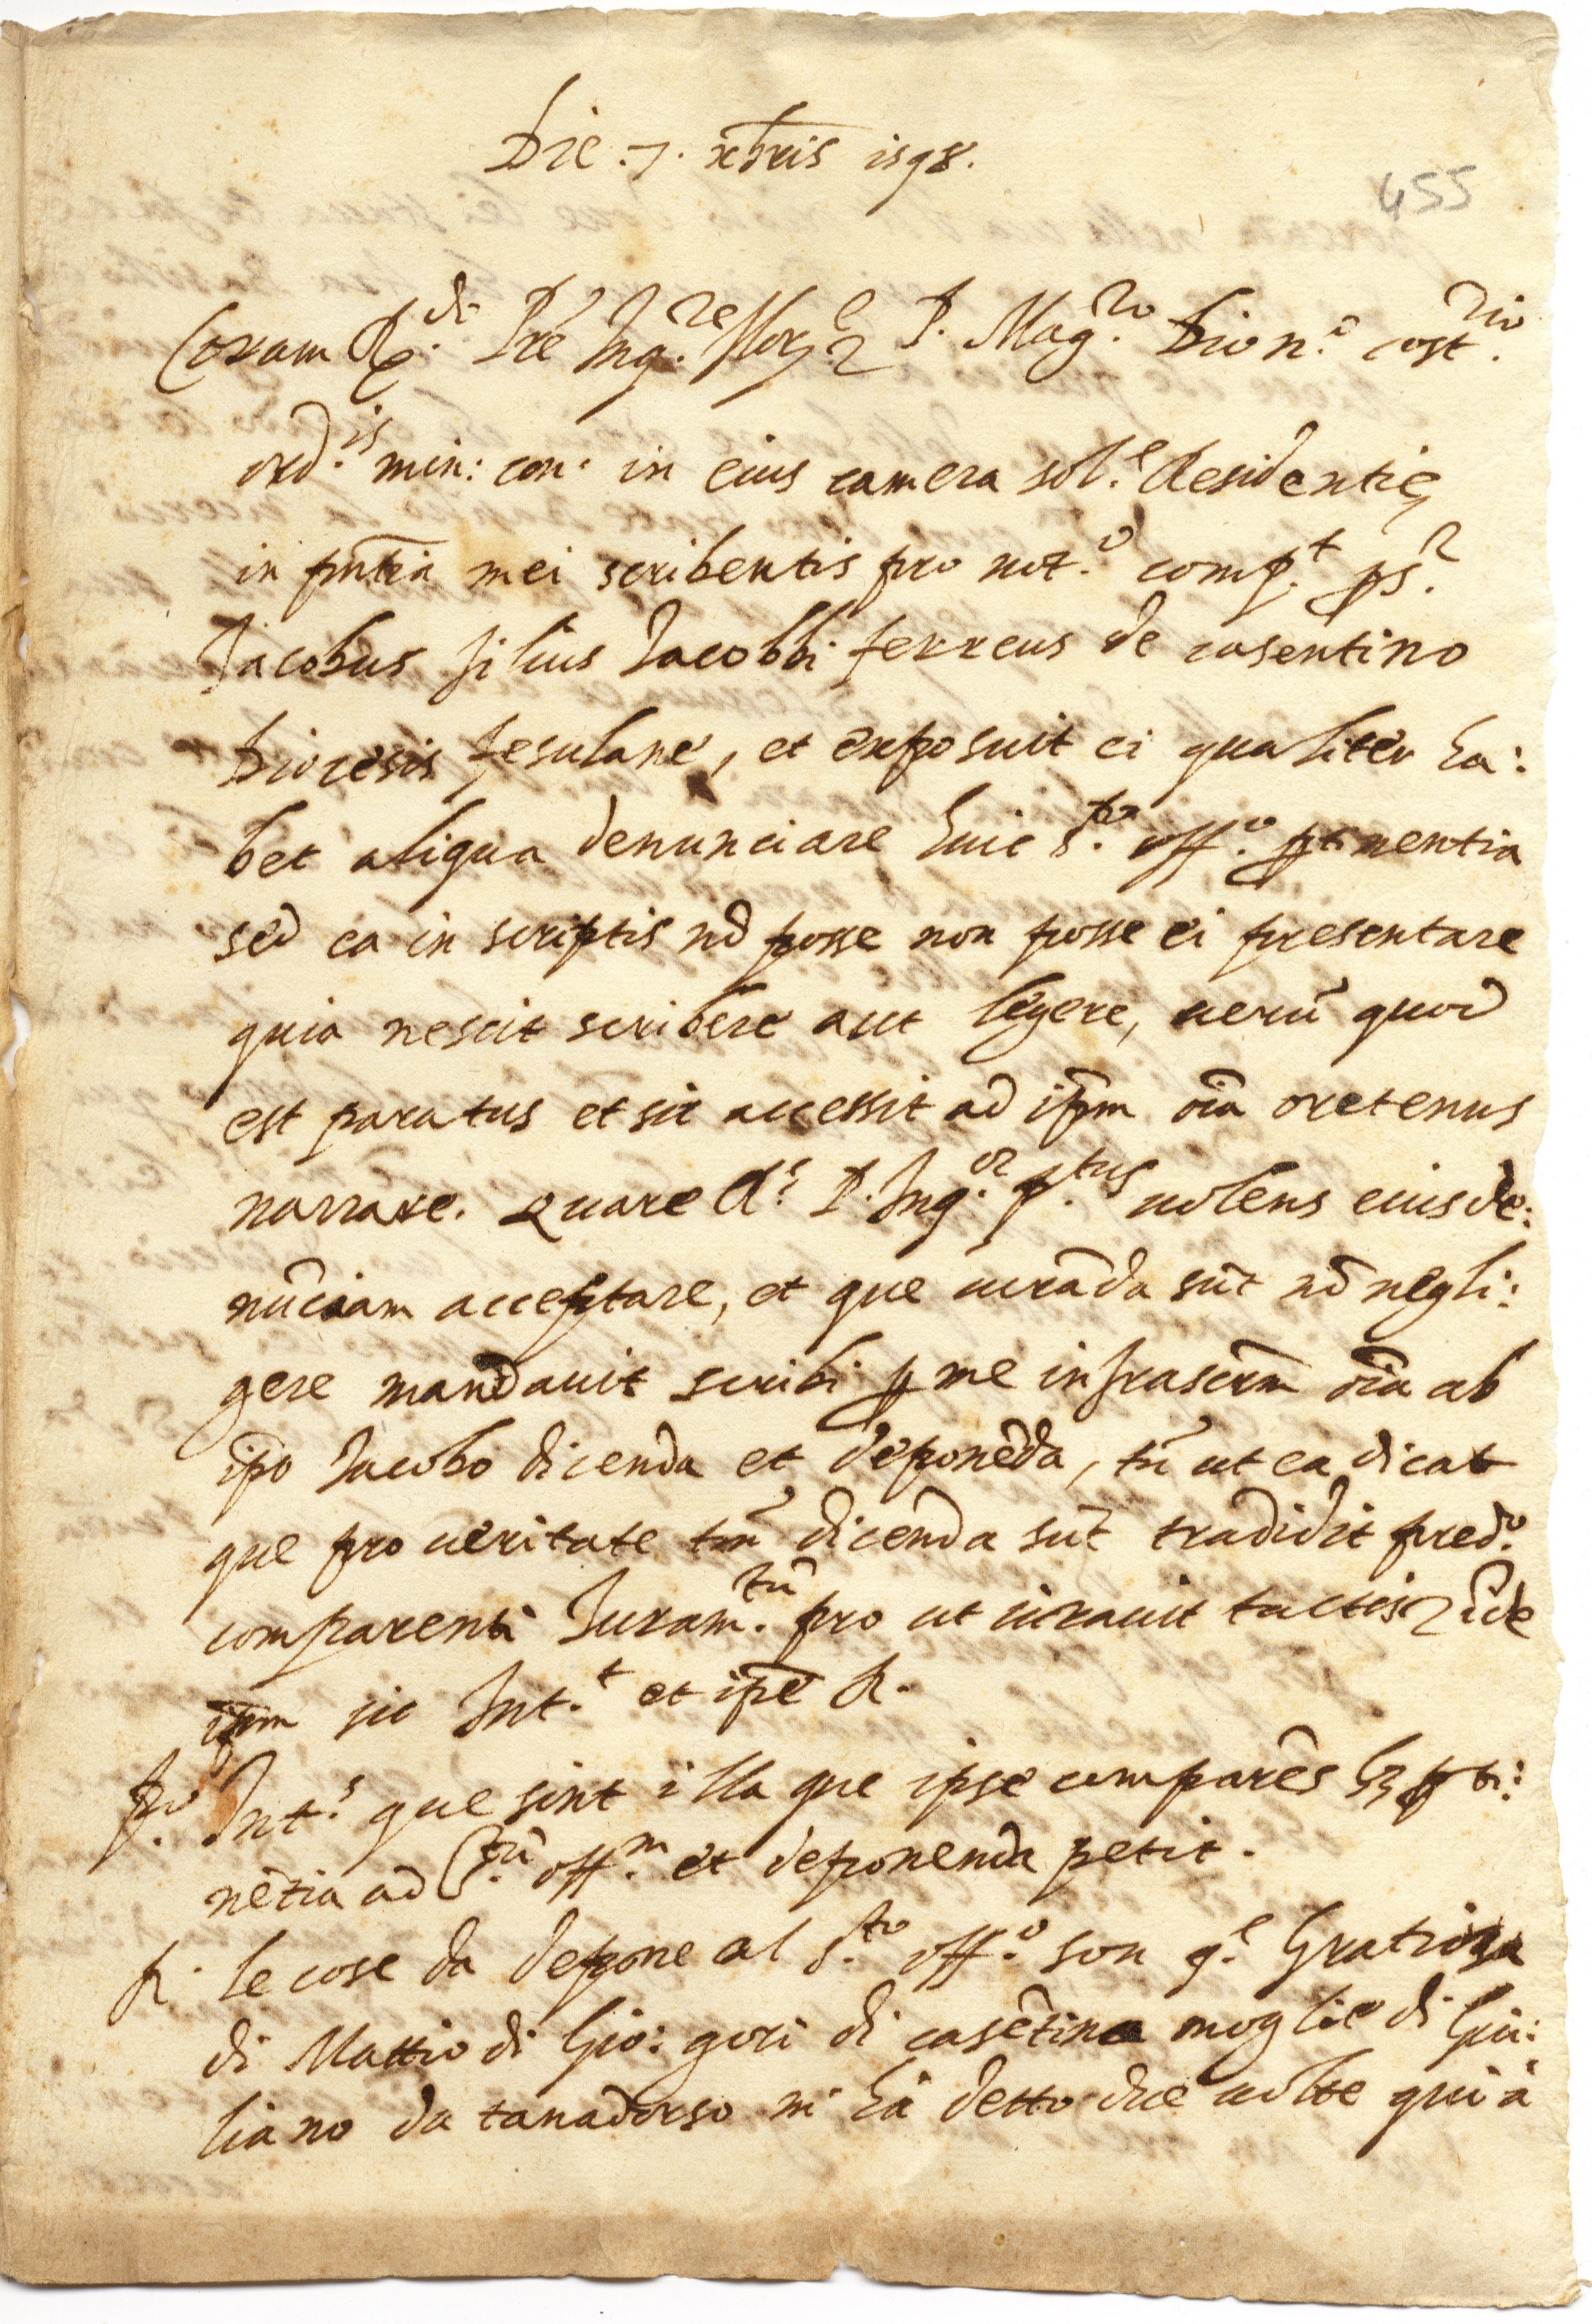 Die .7. xbris 1598.
455
Coram R.do Pre Inq.re Flor.e P. Mag.ro Dion.o cost.rio
ord.is min: con: in eius camera sol.e Residentie
in pñtia mei scribentis pro not.o comp.t ps.r
Jacobus filius Jacobbi ferreus de casentino
Diocesis fesulane, et exposuit ei qualiter ha:
bet aliqua denunciare huic s.to off.o ptinentia
sed ea in scriptis nõ posse non posse ei presentare
quia nescit scribere aut legere, uerũ quod
est paratus et sic accessit ad ip̃m oĩa oretenus
narrare. Quare R.s P. Inq.or p.tus uolens eius de:
nũciam acceptare, et que curãda sũt nõ negli:
gere mandauit scribi p me infrascrm̃ oĩa ab
ip̃o Jacobo dicenda et deponẽda, tñ ut ea dicat
que pro ueritate tm̃ dicenda sũt tradidit pred.o
comparenti Juram.tũ pro ut iurauit tactis
ip̃m sic Int.t et ip̃e R.
P.o Int.s que sint illa que ipse comparẽs hẽt pti:
nẽtia ad S.tũ off.m et deponenda petit.
R. le cose da depone al s.to off.o son q.e Gratiosa
di Mattio di Gio: gori di casẽtino moglie di Giu:
liano da tanadorso m' hà detto due uolte qui à